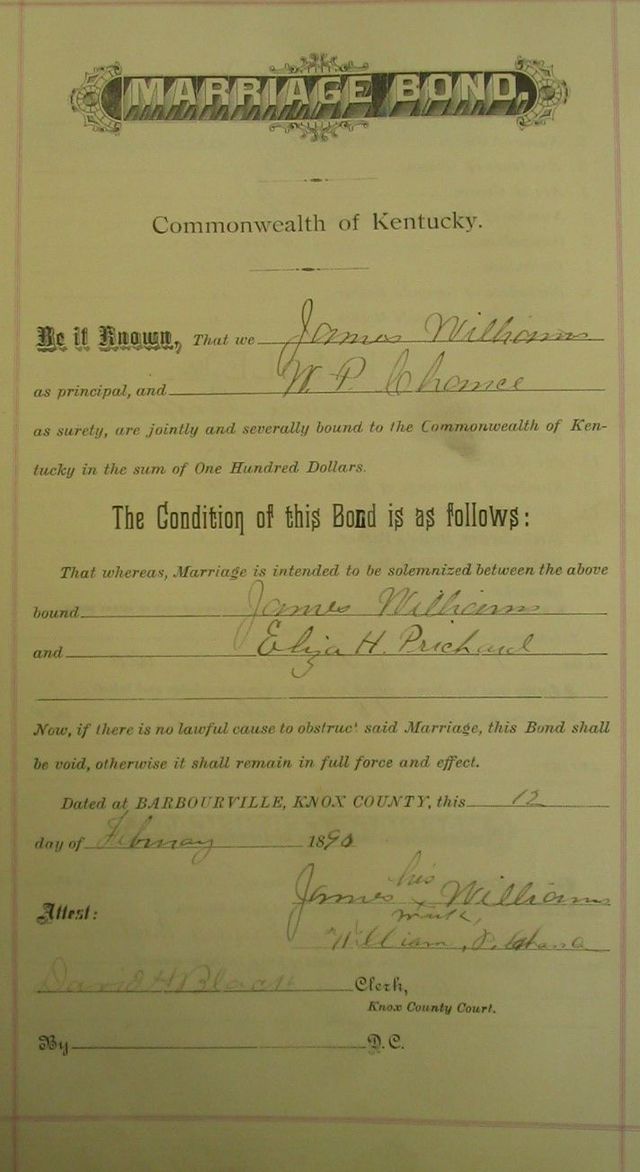 MARRIAGE BOND,
Commonwealth of Kentucky.
Be it Known, That we James Williams
as principal, and W. P. Chance
as surety, are jointly and severally bound to the Commonwealth of Ken-
tucky in the sum of One Hundred Dollars.
The Condition of this Bond is as follows:
That whereas, Marriage is intended to be solemnized between the above
bound James Williams
and Eliza H. Prichard
Now, if there is no lawful cause to obstruct said Marriage, this Bond shall
be void, otherwise it shall remain in full force and effect.
Dated at BARBOURVILLE, KNOX COUNTY, this 12
day of February 1890
his
Attest: James x Williams
mark,
William P.
David H Black Clerk,
Knox County Court.
By D.C.